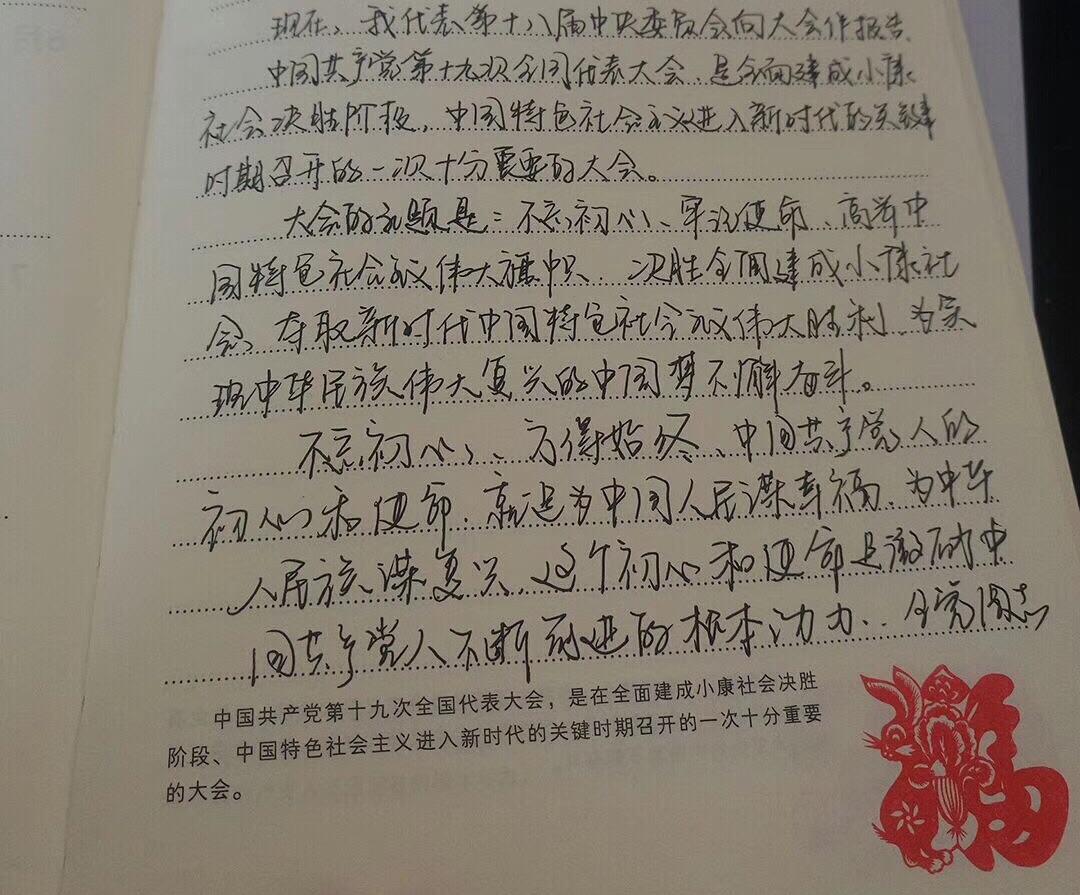 现在，我代表第十八届中央委员会向大会作报告。
中国共产党第十九次全国代表大会，是全面建成小康
社会决胜阶段，中国特色社会主义进入新时代的关键
时期召开的一次十分重要的大会。
大会的主题是：不忘初心、牢记使命、高举中
国特色社会主义伟大旗帜、决胜全面建成小康社
会、夺取新时代中国特色社会主义伟大胜利、为实
现中华民族伟大复兴的中国梦不懈奋斗。
不忘初心、方得始终、中国共产党人的
初心和使命，就是为中国人民谋幸福，为中华
人民族谋复兴，这个初心和使命是激励中
国共产党人不断前进的根本动力.. 全党同志
中国共产党第十九次全国代表大会，是在全面建成小康社会决胜
阶段、中国特色社会主义进入新时代的关键时期召开的一次十分重要
的大会。
福